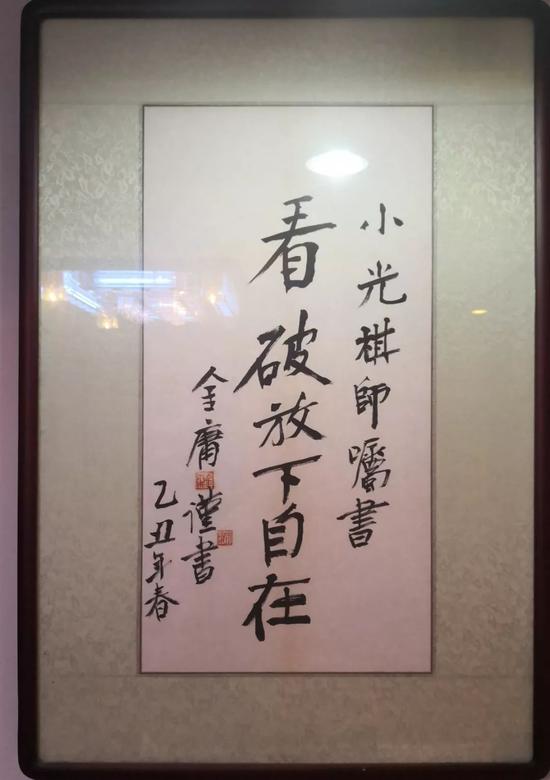 小光棋師囑書
看破放下自在
金庸謹書
乙丑年春